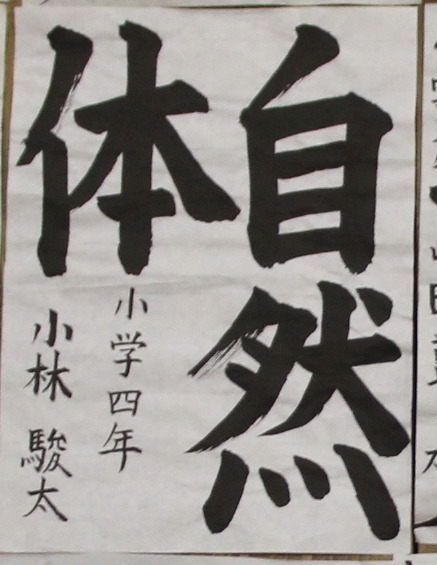 自然
体
小学四年
小林駿太